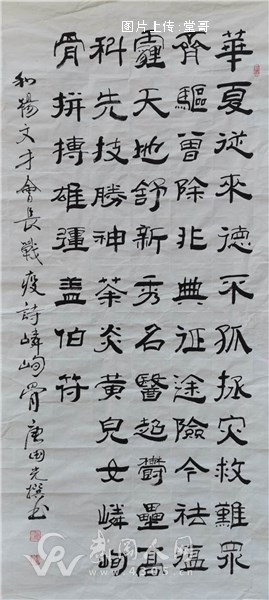 图片上传:堂哥
華夏従來德不孤振灾救難眾
齊驅曾除非典征途險今祛瘟
霾天地舒新秀名醫超欝壘高
科先技勝神荼炎黃兒女嶙峋
骨拼搏雄彊盖伯符
和楊文才會長戰疫詩嶙峋骨 先撰书